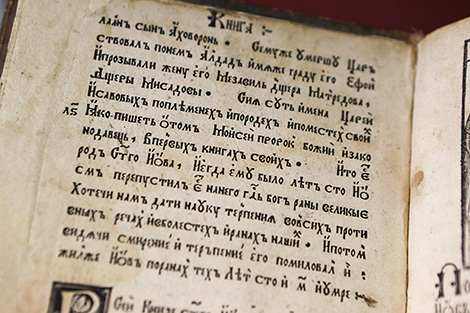 Книга :~
лаанъ сынъ Аховоронь • Семуже умершу Царь
ствовалъ понем Алдад ймаже граду его Ефой
Йпрозывали жену его Мезавиль дщера Матредова,
Дщеры Мисадовы • Сия суть имена Царей
Йсавовыхъ поплеменехъ йпородех йпоместех своӣ
Яко пишеть ѻтом Мойсей пророк божий изако
нодавець, Впервыхъ книгахъ своихъ • Йто е҃
род Ст҃го Йѡва, Йегда ему было летъ сто йѻ
см перепустил е҃ нанего гд҃ь богъ раны великые
Хотечи нам дати науку терпения вовсихъ проти
вныхъ речах йвболестех йранах наших • Йпотом
видячи смирение и терьпение его помиловал й :
жилже Йѡвъ поранах тех летъ сто и м҃ йумре :~
Сей Книзе